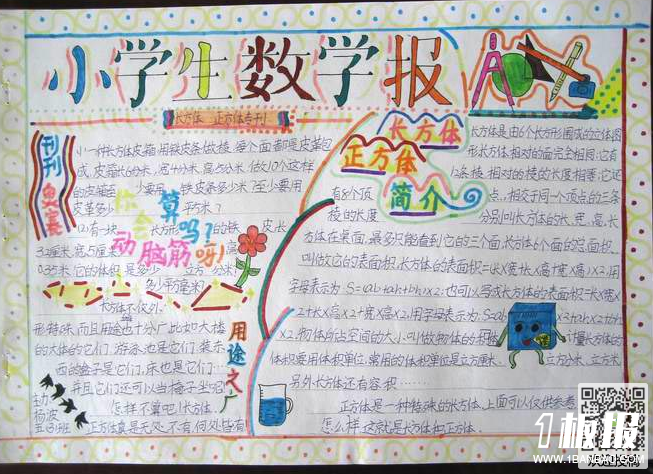 小学生数学报
长方体 正方体专刊
刊刊奥赛
小一种长方体皮箱用铁皮条做棱,每个面都是皮革包
成,皮箱长6米,宽4分米,高5分米,做10个这样
的皮箱至少要用 铁皮条多少米?至少要用
皮革多少 平方米?
你会算吗?
动脑筋呀!
2)有一块 长方形的铁 皮,长
3.2厘米,宽5厘米
0.35米,它的体积是多少 立方分米?
多少平方厘米?
用途之广
长方体不仅外
形特殊,而且用途也十分广,比如大楼
的大体的它们,游泳池是它们,装东
西的盒子是它们,床也是它们…
并且它们还可以当椅子坐呢
怎样不赖吧!长方体
正方体真是无处不有,何处皆有
五(3)班
长方体
正方体
简介
长方体是由6个长方形围成的立体图
形,长方体,相对的面完全相同,它有
12条棱,相对的棱的长度相等;它还
有8个顶点,相交于同一顶点的三条
棱的长度分别叫长方体的长,宽,高,长
方体在桌面,最多只能看到它的三个面,长方体6个面的总面积,
叫做它的表面积,长方体的表面积=(长X宽+长X高+宽X高)X2,用
字母表示为:S=(ab+ah+bh)x2;也可以写成长方体的表面积=长X宽
X2+长X高X2+宽X高X2;用字母表示为:S=
x2,物体所占空间的大小叫做物体的 计量长方体的
体积要用体积单位,常用的体积单位是立方厘米, 立方分米,立方米
另外长方体还有容积……
正方体是一种特殊的长方体,上面可以仅供参考
怎么样,这就是长方体和正方体.
1板报
WWW.1BANBAO.COM